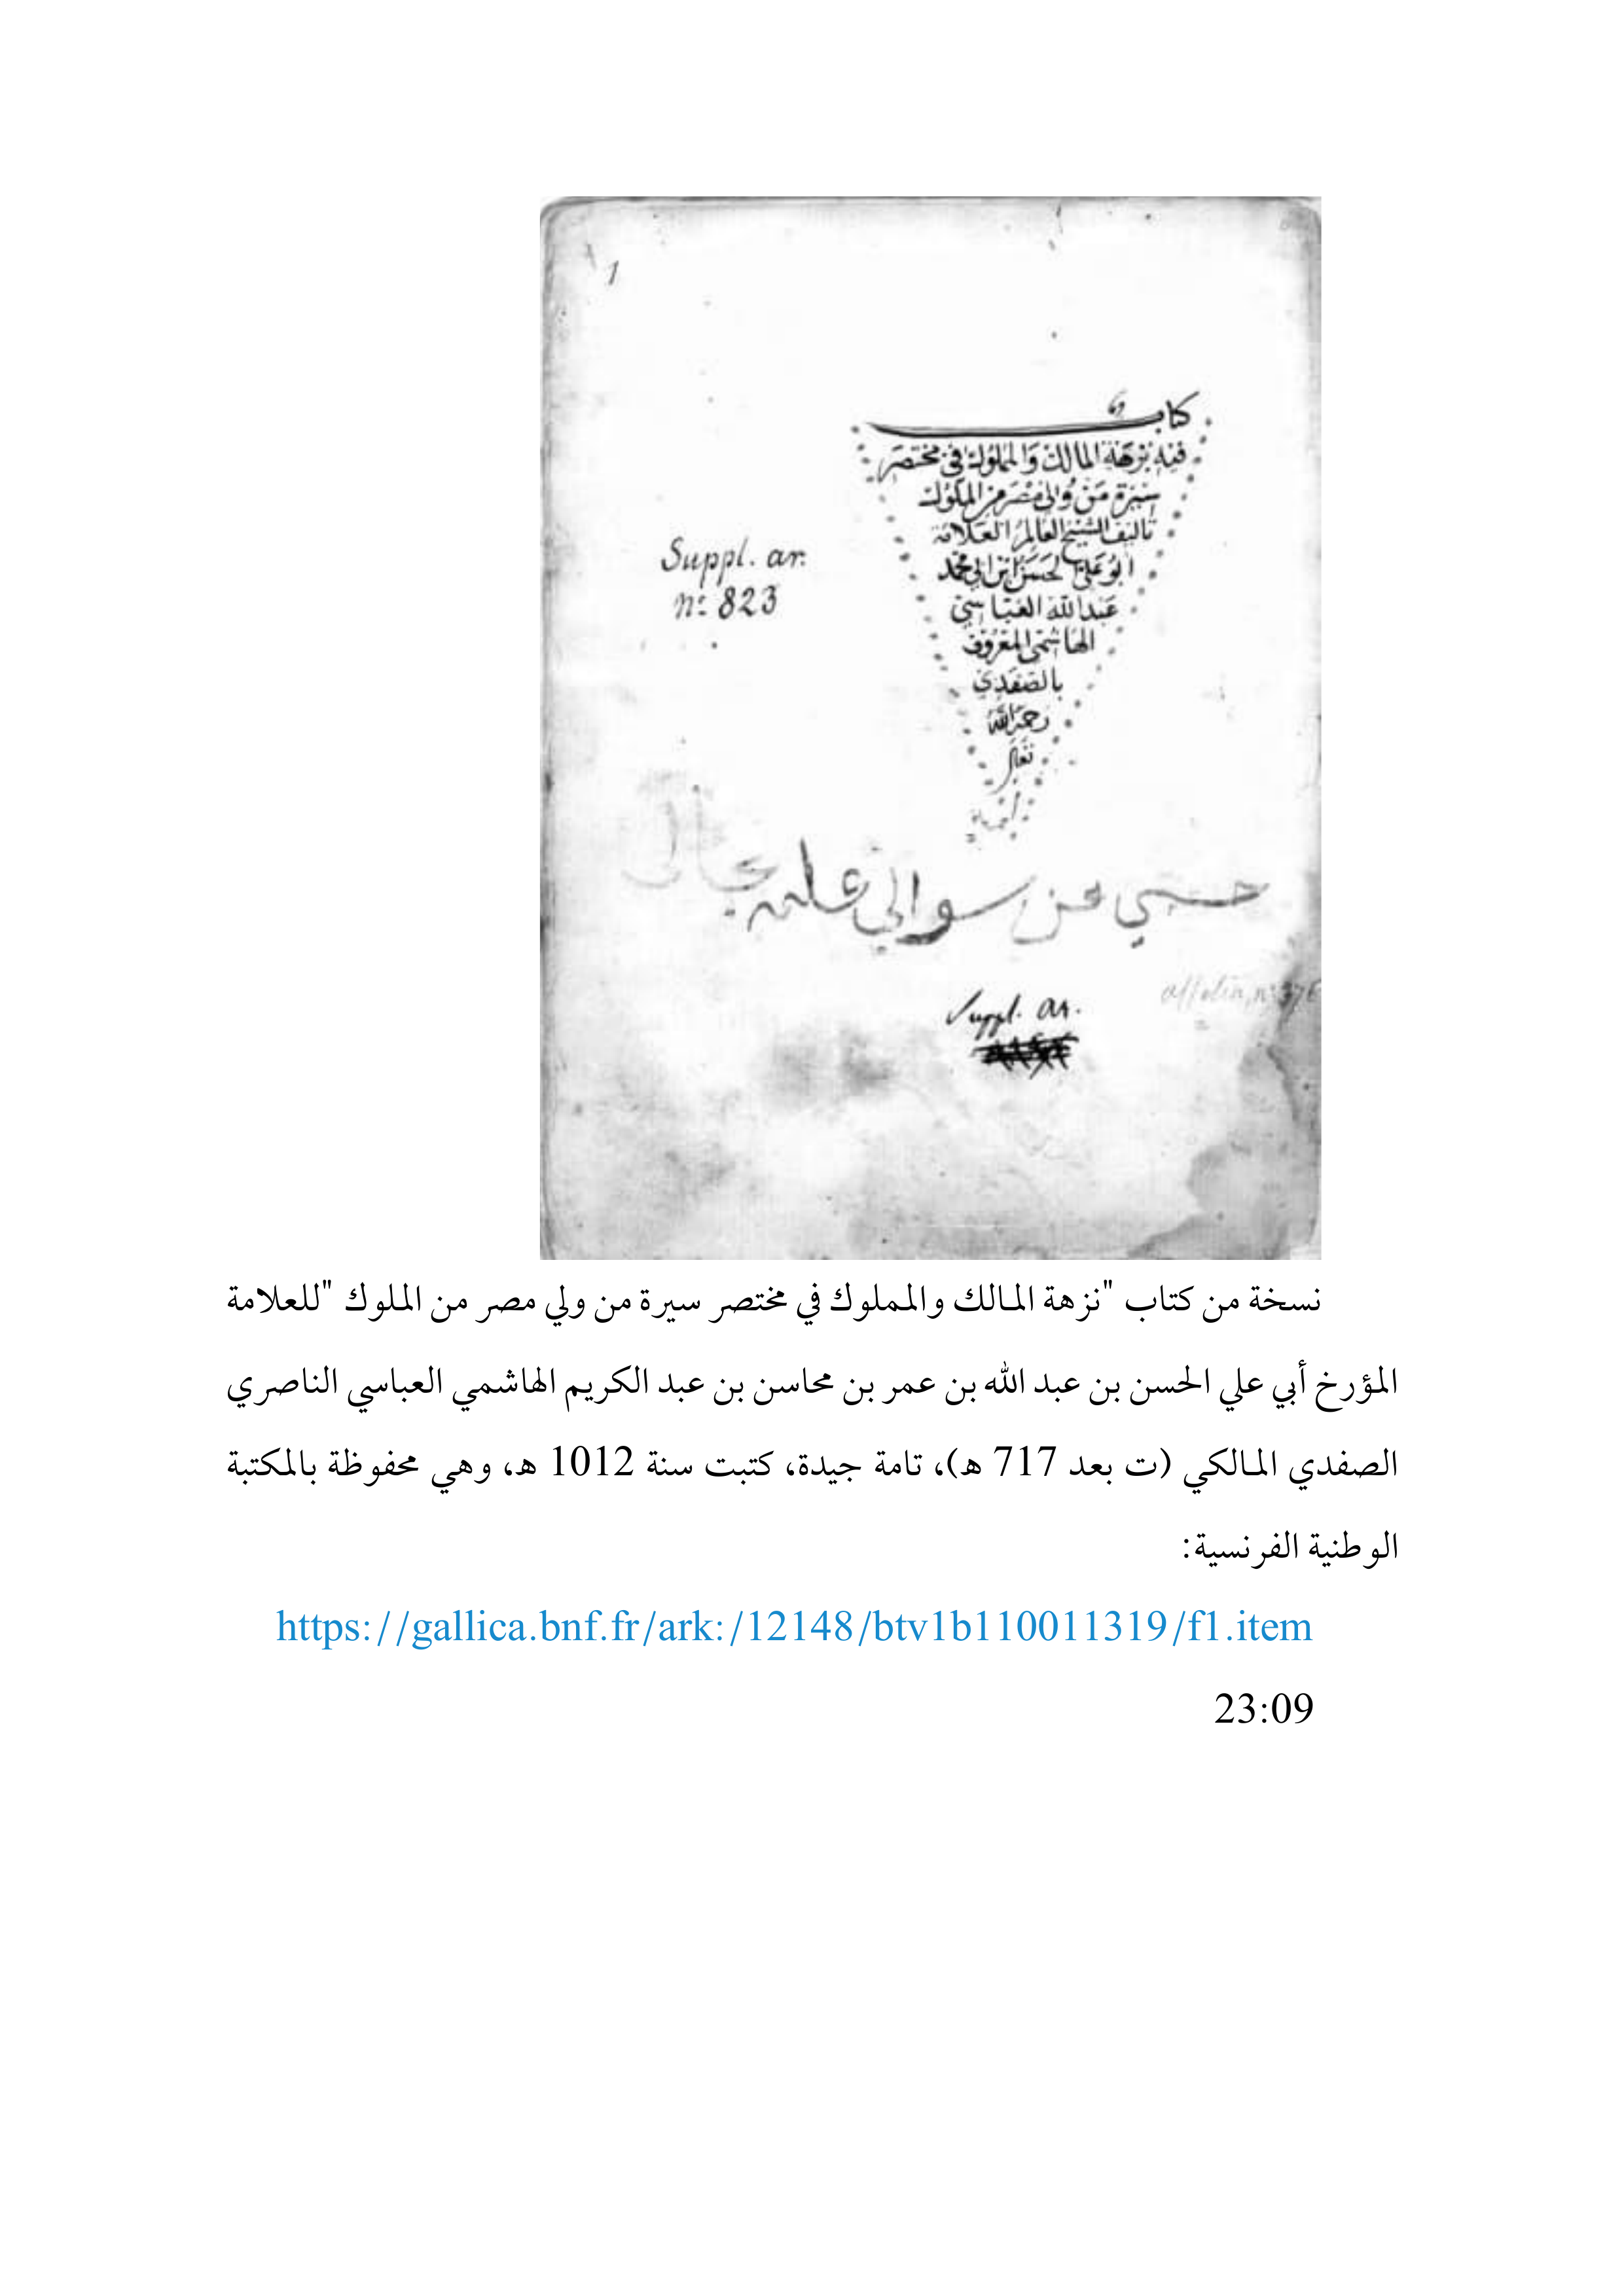 1
كتاب
فيه نزهة المالك والمملوك في مختصر
سيرة من ولى مصر من الملوك
تاليف الشيخ العالم العلامة
ابو على الحسن ابن ابى محمد
عبد الله العباسي
الهاشمى المعروف
بالصفدي
رحمه الله
تعالى
Suppl. ar.
n° 823
حسبي من سوالي علمه بحالى
Suppl. ar.
نسخة من كتاب "نزهة المالك والمملوك في مختصر سيرة من ولي مصر من الملوك "للعلامة
المؤرخ أبي علي الحسن بن عبد الله بن عمر بن محاسن بن عبد الكريم الهاشمي العباسي الناصري
الصفدي المالكي (ت بعد 717 هـ)، تامة جيدة، كتبت سنة 1012 هـ، وهي محفوظة بالمكتبة
الوطنية الفرنسية:
https://gallica.bnf.fr/ark:/12148/btv1b110011319/f1.item
23:09